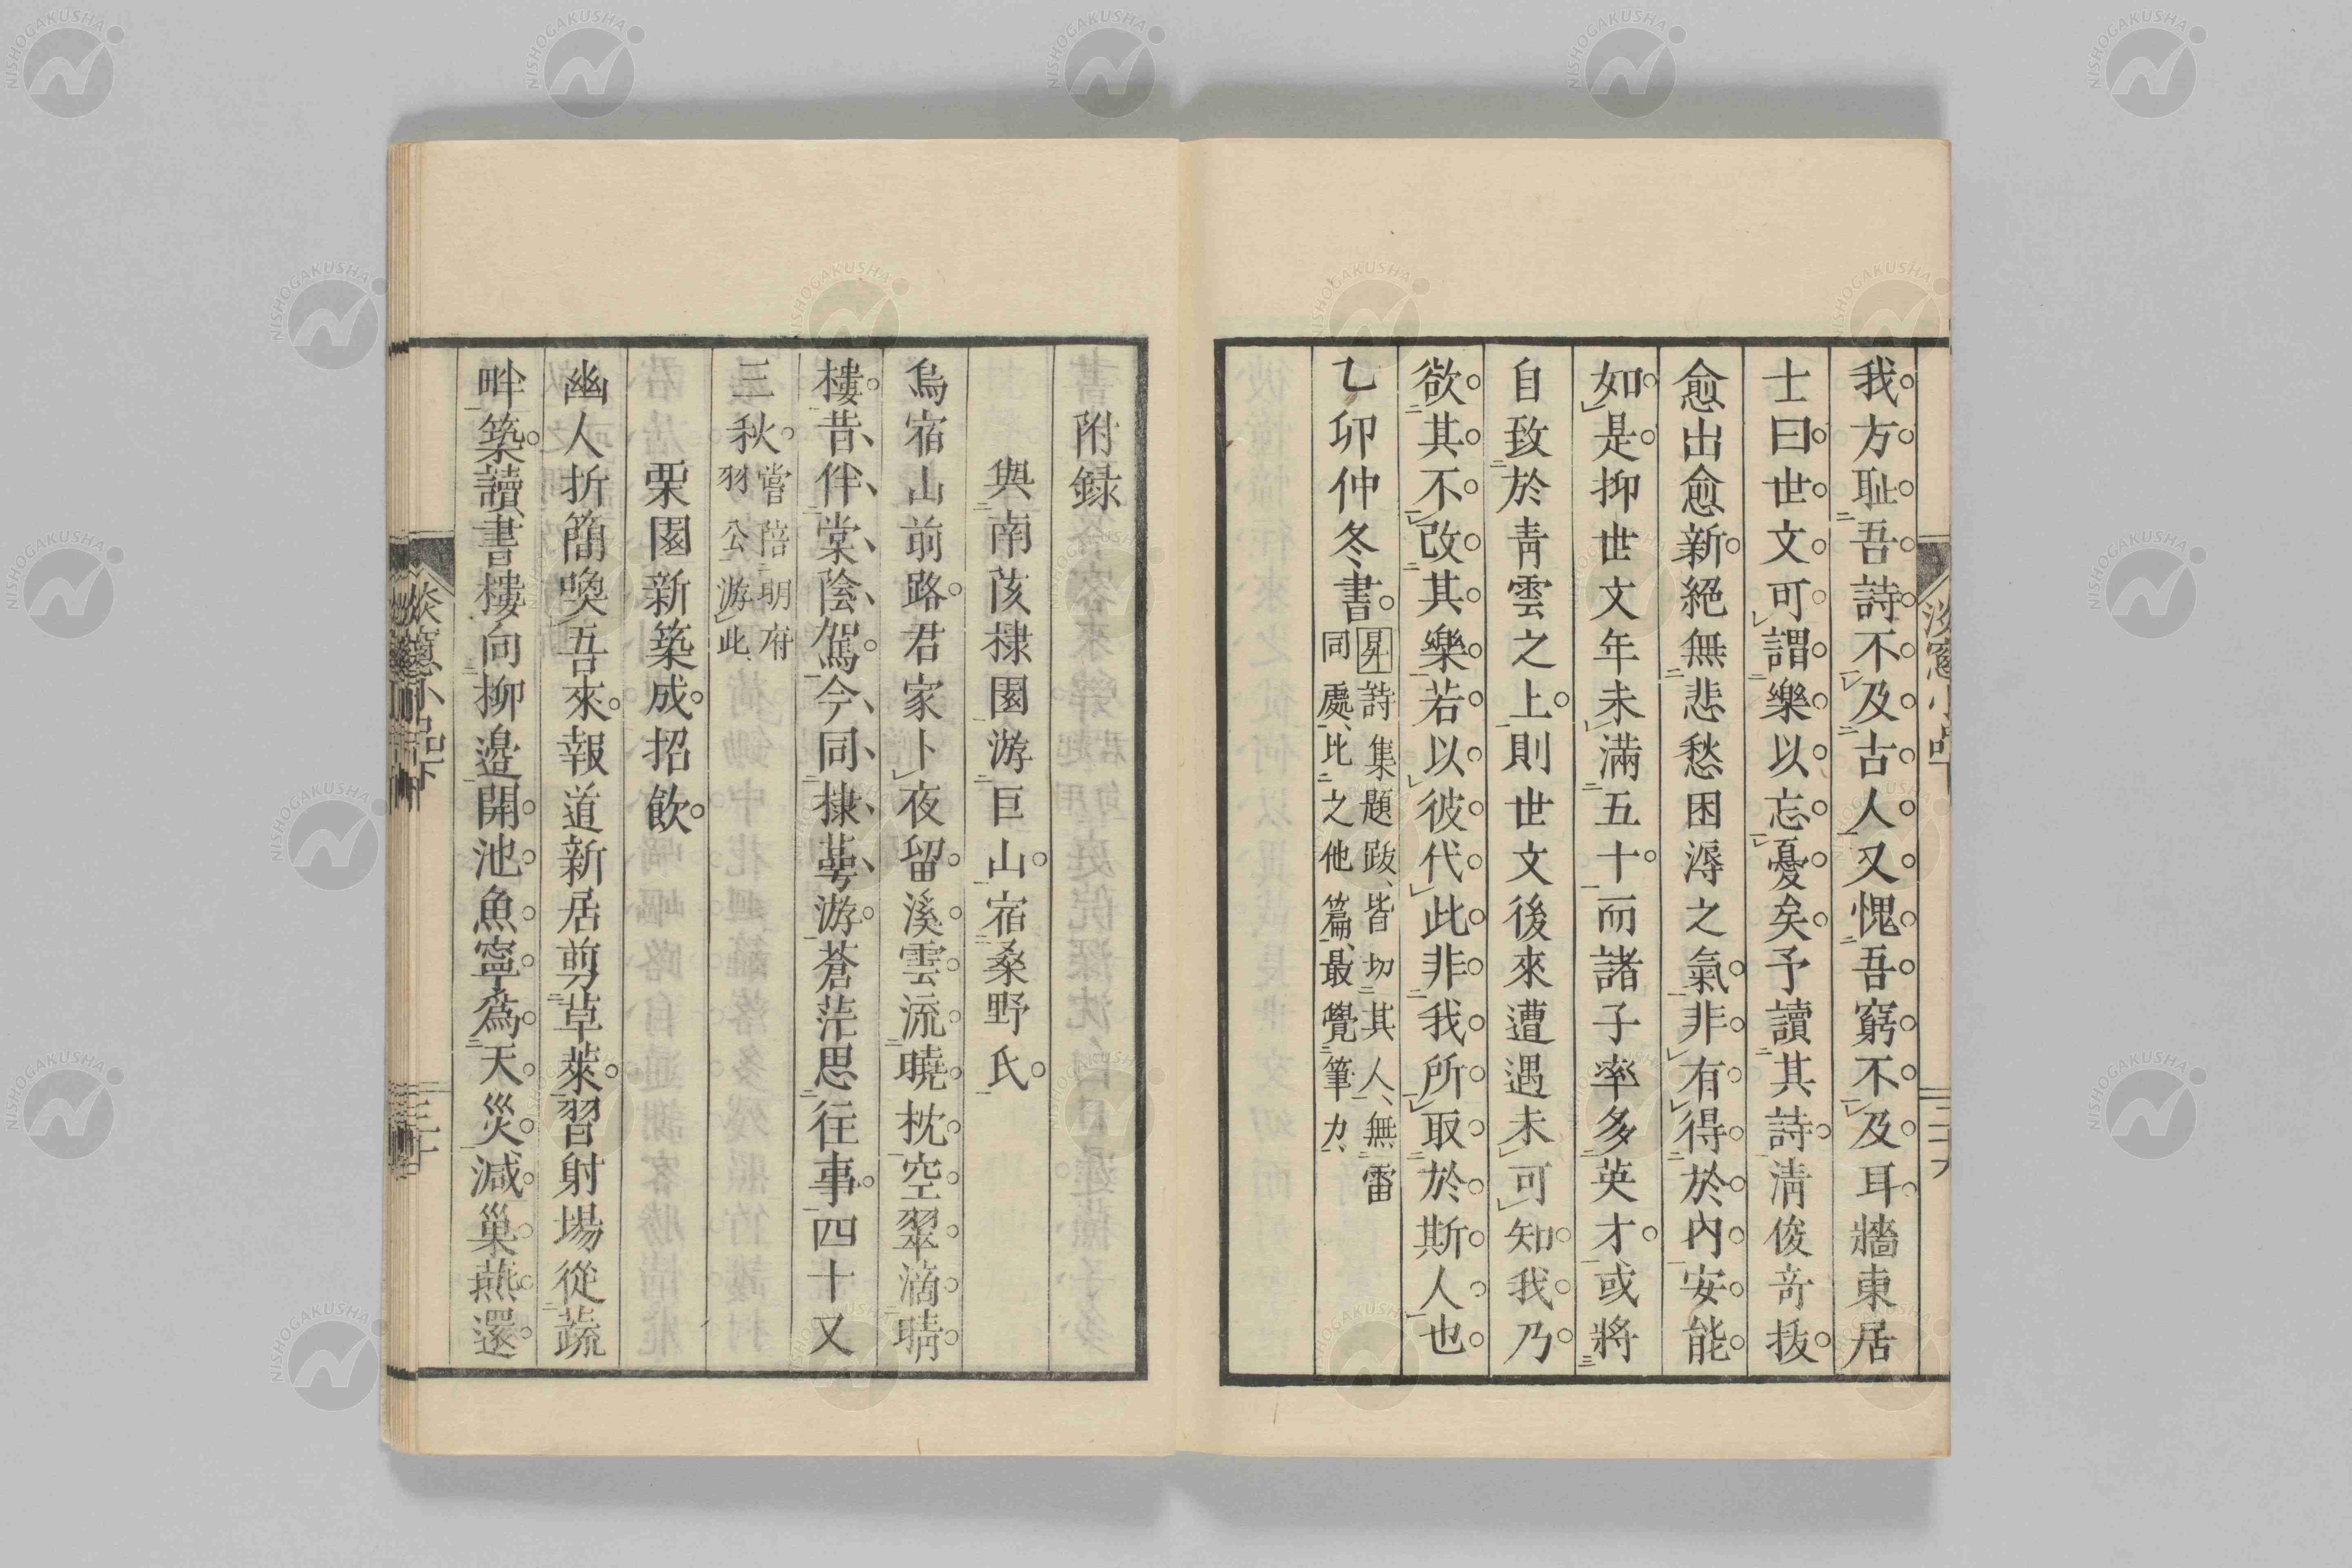 我方耻吾詩不及古人又愧吾窮不及耳牆東居
士曰世文可謂樂以忘憂矣予讀其詩清俊奇拔
愈出愈新絕無悲愁困溽之氣非有得於內安能
如是抑世文年未滿五十而諸子率多英才或將
自致於青雲之上則世文後來遭遇未可知我乃
欲其不改其樂若以彼代此非我所取於斯人也
乙卯仲冬書
詩集題跋皆切其人無雷
同處比之他篇最覺筆力
附録
與南陔棣園游巨山宿桑野氏
烏宿山前路君家卜夜留溪雲流曉枕空翠滴晴
樓昔伴棠陰駕今同棣萼游蒼茫思往事四十又
三秋
嘗陪明府
羽公游此
栗園新築成招飲
幽人折簡喚吾來報道新居剪草萊習射場從蔬
畔築讀書樓向柳邊開池魚寧為天災減巢燕還
淡窻小品下
三十
NISHOGAKUSHA